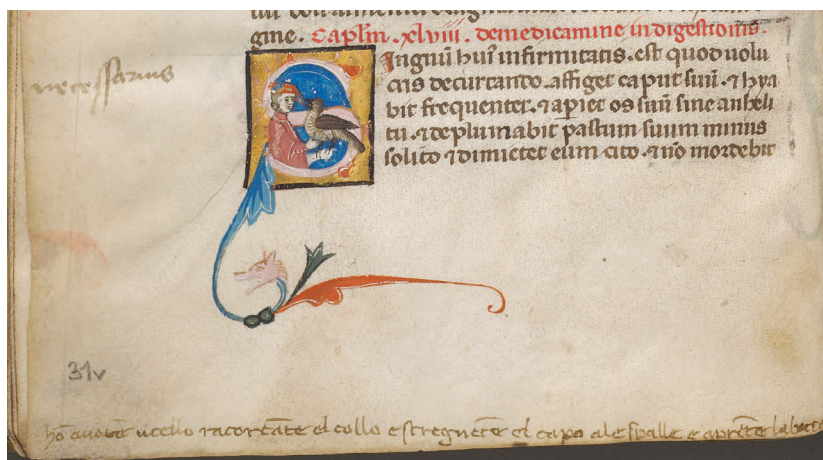 gine. Capl̄m .xlviii. de medicamine in digestionis.
necessarius
Singnū huī infirmitatis. est quod uolu
cris decurtando. affiget caput suū. ⁊ hya
bit frequenter. ⁊ apiet os suū sine anheli
tu. ⁊ depluinabit pastum suum minus
solito ⁊ dimictet eum cito. ⁊ nō mordebit
31v
ucello racortāte el collo e stregnete el capo ale spalle e aprēte la bocca